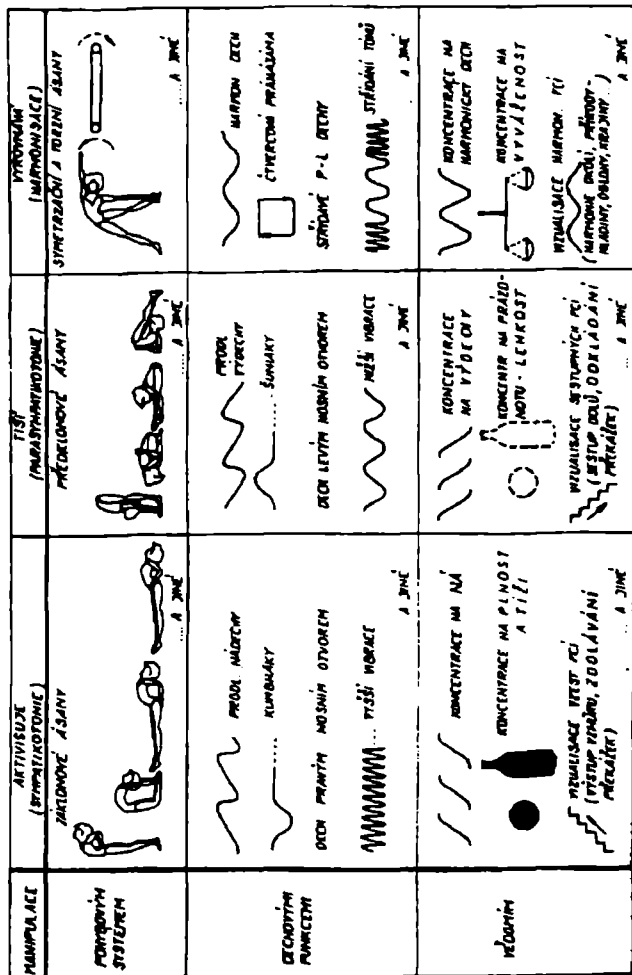 MANIPULACE
AKTIVISUJE
(SYMPATIKOTONIE)
TIŠÍ
(PARASYMPATIKOTONIE)
(HARMONISACE)
POHYBOVÝM
SYSTÉMEM
ZÁKLONOVÉ ÁSANY
..... A JINÉ
PŘEDKLONOVÉ ÁSANY
..... A JINÉ
SYMETRIZAČNÍ A TORZNÍ ÁSANY
..... A JINÉ
DECHOVÝMI
FUNKCEMI
PRODL NÁDECHY
KUMBHAKY
DECH PRAVÝM NOSNÍM OTVOREM
VYŠŠÍ VIBRACE
A JINÉ
PRODL
VÝDECHY
ŠUNJAKY
DECH LEVÝM NOSNÍM OTVOREM
NIŽŠÍ VIBRACE
A JINÉ
HARMON DECH
ČTVERCOVÁ PRÁNAJÁMA
STŘÍDAVÉ P-L DECHY
STŘÍDÁNÍ TÓNŮ
A JINÉ
VĚDOMÍM
KONCENTRACE NA NÁ
KONCENTRACE NA PLNOST
A TÍŽI
VIZUALISACE VZEST PCÍ
(VÝSTUP VZHŮRU, ZDOLÁVÁNÍ
PŘEKÁŽEK)
..... A JINÉ
KONCENTRACE
NA VÝDECHY
KONCENTR NA PRÁZD-
NOTU - LEHKOST
VIZUALISACE SESTUPNÝCH PCÍ
(SESTUP DOLŮ, ODKLÁDÁNÍ
PŘEKÁŽEK)
A JINÉ
KONCENTRACE NA
HARMONICKÝ DECH
KONCENTRACE NA
VYVÁŽENOST
VIZUALISACE HARMON. PCÍ
(HARMONIE OKOLÍ, PŘÍRODY-
HLADINY, OBLOHY, KRAJINY...)
A JINÉ